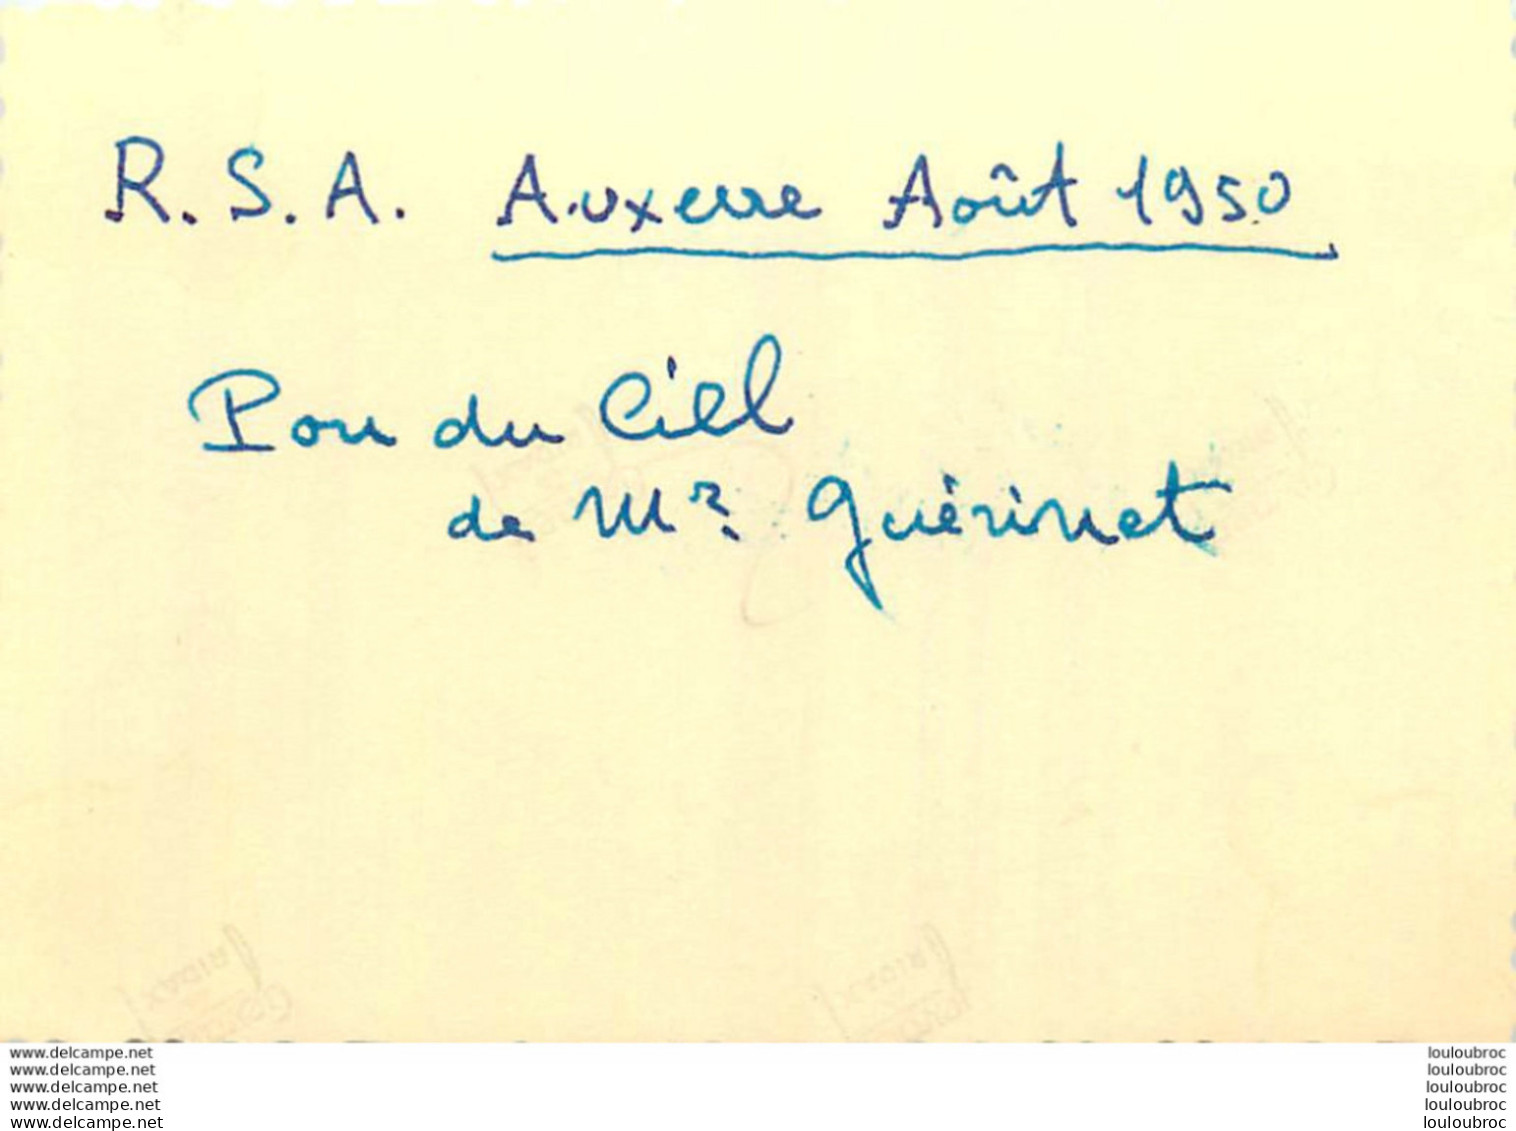 R.S.A. Auxerre Août 1950
Pou du Ciel
de Mr. Guérinet
www.delcampe.net
www.delcampe.net
www.delcampe.net
www.delcampe.net
www.delcampe.net
louloubroc
louloubroc
louloubroc
louloubroc
louloubroc